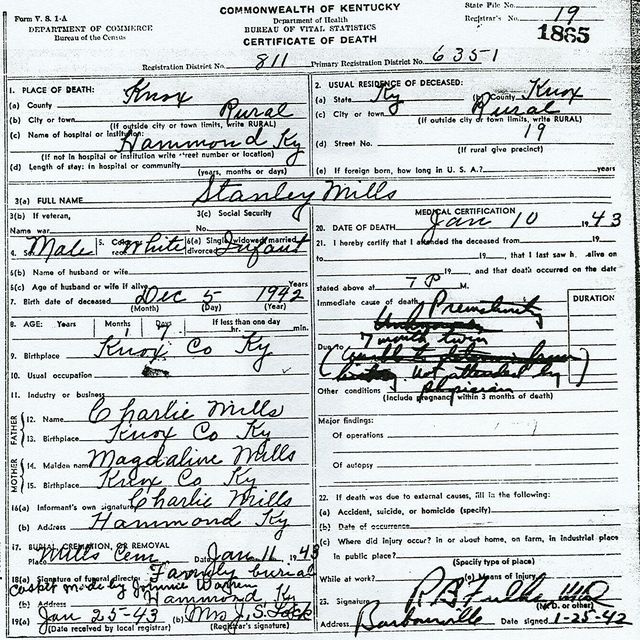 Form V. S. 1-A
COMMONWEALTH OF KENTUCKY
State File No.
DEPARTMENT OF COMMERCE
Bureau of the Census
Department of Health
BUREAU OF VITAL STATISTICS
CERTIFICATE OF DEATH
Registrar's No. 19
1885
Registration District No. 811 Primary Registration District No. 6351
1. PLACE OF DEATH:
(a) County Knox
(b) City or town Rural
(If outside city or town limits, write RURAL)
(c) Name of hospital or institution: Hammond Ky
(If not in hospital or institution write street number or location)
(d) Length of stay: in hospital or community
(years, months or days)
2. USUAL RESIDENCE OF DECEASED:
(a) State Ky (b) County Knox
(c) City or town Rural
(If outside city or town limits, write RURAL)
(d) Street No. 19
(If rural give precinct)
(e) If foreign born, how long in U. S. A.? years
3(a) FULL NAME Stanley Mills
3(b) If veteran,
Name war
3(c) Social Security
No.
4. Sex Male 5. Color or race White 6(a) Single, widowed, married, divorced Infant
6(b) Name of husband or wife
6(c) Age of husband or wife if alive Years
7. Birth date of deceased Dec 5 1942
(Month) (Day) (Year)
8. AGE: Years Months Days If less than one day
1 7 hr. min.
9. Birthplace Knox Co Ky
10. Usual occupation
11. Industry or business
FATHER
12. Name Charlie Mills
13. Birthplace Knox Co Ky
MOTHER
14. Maiden name Magdaline Mills
15. Birthplace Knox Co Ky
16(a) Informant's own signature Charlie Mills
(b) Address Hammond Ky
17. BURIAL, CREMATION, OR REMOVAL
Place Mills Cem Date Jan 11 1943
18(a) Signature of funeral director Family burial
casket made by Warren
(b) Address Hammond Ky
19(a) Jan 25-43 (b) Mrs J. S.
(Date received by local registrar) (Registrar's signature)
MEDICAL CERTIFICATION
20. DATE OF DEATH Jan 10 1943
21. I hereby certify that I attended the deceased from 19
to 19 , that I last saw h alive on
19 , and that death occurred on the date
stated above at 7 P M.
DURATION
Immediate cause of death Prematurity
7 month twin
Due to
not attended by
Other conditions physician
(Include pregnancy within 3 months of death)
Major findings:
Of operations
Of autopsy
22. If death was due to external causes, fill in the following:
(a) Accident, suicide, or homicide (specify)
(b) Date of occurrence
(c) Where did injury occur? in or about home, on farm, in industrial place
in public place?
(Specify type of place)
While at work? (e) Means of injury
23. Signature R B MD
(M. D. or other)
Address Barbourville Date signed 1-25-42